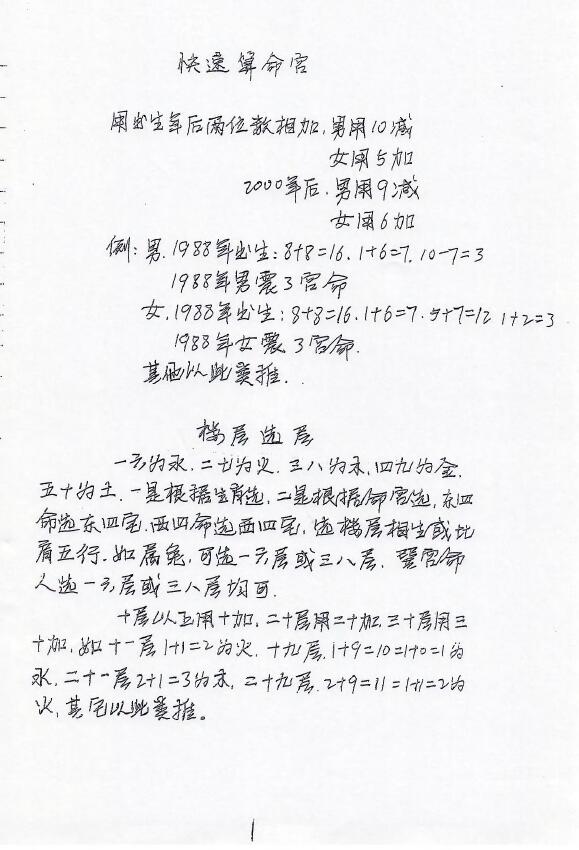 快速算命宫
用出生年后两位数相加,男用10减
女用5加
2000年后.男用9减
女用6加
例:男.1988年出生:8+8=16.1+6=7.10-7=3
1988年男震3宫命
女.1988年出生:8+8=16.1+6=7.5+7=12 1+2=3
1988年女震3宫命.
其他以此类推..
楼层选层
一六为水.二七为火.三八为木,四九为金.
五十为土.一是根据生肖选,二是根据命宫选,东四
命选东四宅.西四命选西四宅,选楼层相生或比
肩五行.如属兔,可选一六层或三八层.震宫命
人选一六层或三八层均可.
十层以上用十加,二十层用二十加.三十层用三
十加,如十一层1+1=2为火.十九层.1+9=10=1+0=1为
水.二十一层2+1=3为木,二十九层.2+9=11=1+1=2为
火,其它以此类推。
1